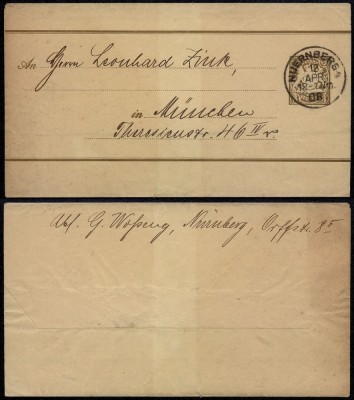 An Herrn Leonhard Zink,
in München
Theresienstr. 46 IV r.
NUERNBERG
12
APR
08
Abs. G. Nürnberg, Orffstr. 85